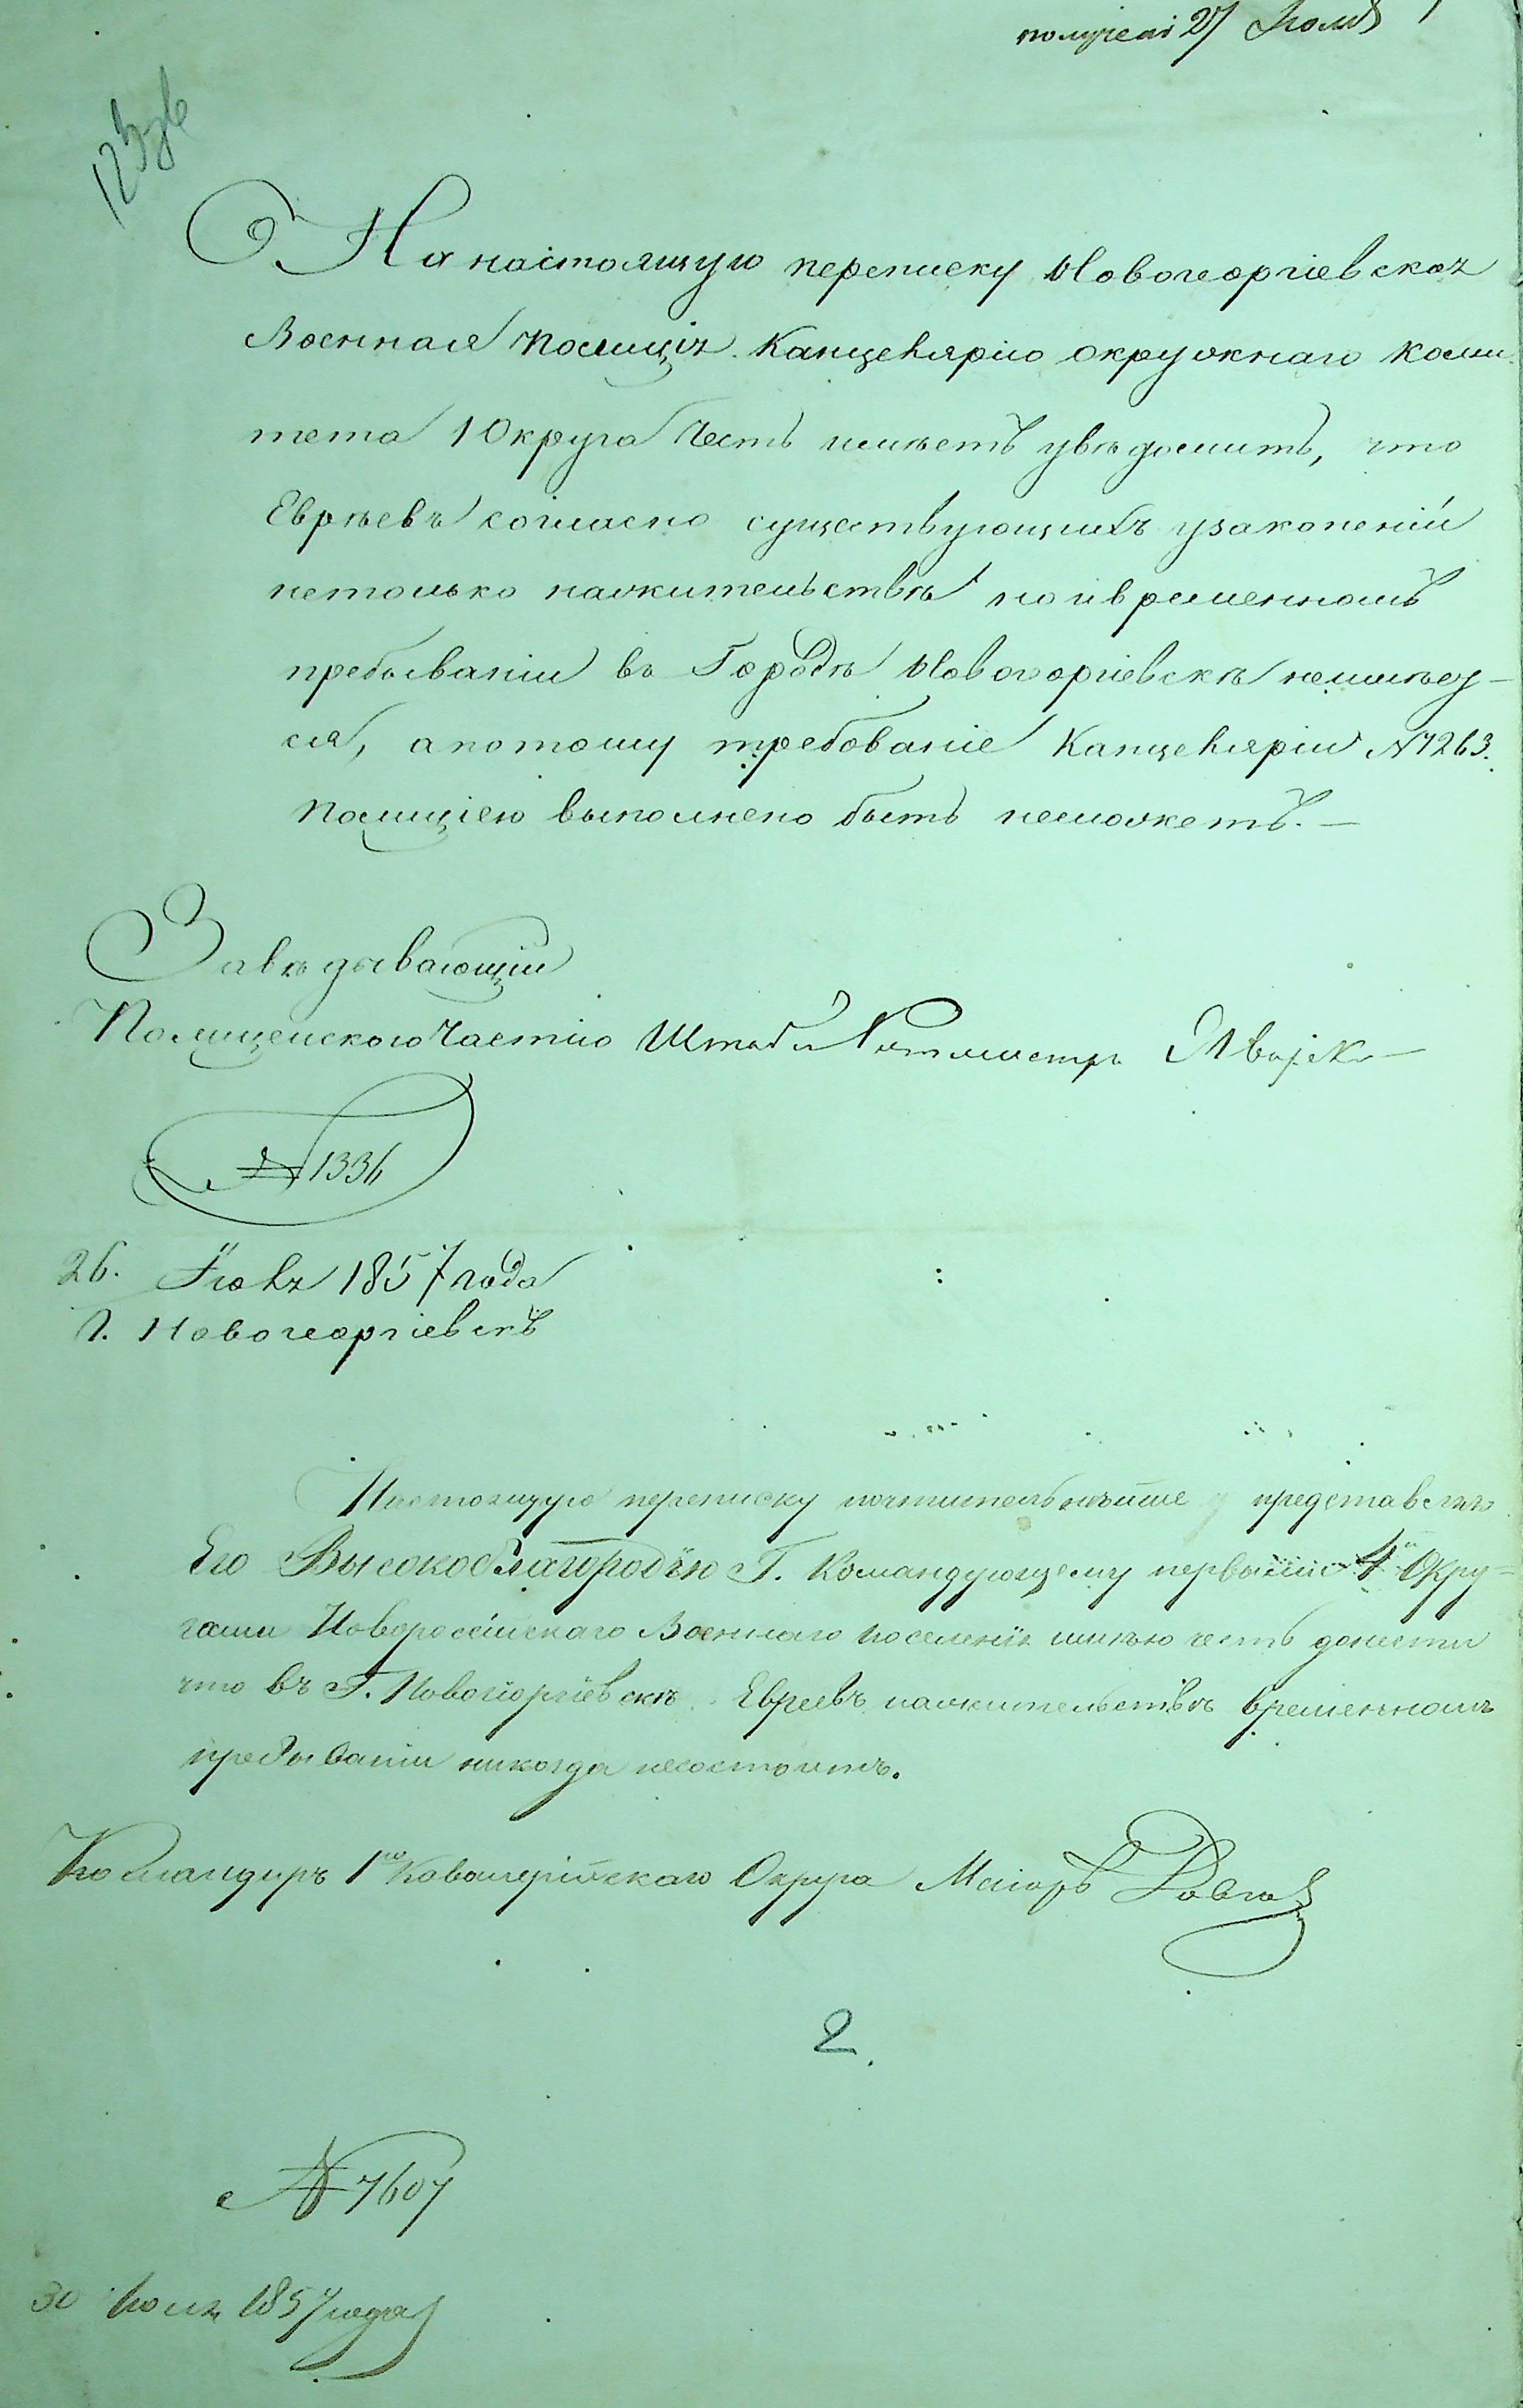 получено 27 Июля
На настоящую переписку Новогеоргіевская
Военная Полиція Канцелярію окружнаго коми
тета 1 Округа Честь имѣетъ увѣдомить, что
Еврѣевъ согласно существующихъ узаконеній
нетолько нажительствѣ но ивременномъ
пребываніи въ Городѣ Новогеоргіевскѣ неимѣет-
ся, апотому требованіе Канцеляріи №7263.
Полиціею выполнено быть неможетъ.—
Завѣдывающій
Полицейскою Частію Штабъ Ротмистръ
№ 1336
26. Іюля 1857 года
Г. Новогеоргіевскъ
Настоящую переписку почтительнѣйше представляя
Его Высокоблагородію Г. Командующему первыми 4й Окру=
гами Новороссійскаго Военнаго поселенія имѣю честь донести
что въ Г. Новогеоргіевскѣ Евреевъ нажительствѣ временномъ
пребываніи никогда несостоитъ.
Командиръ 1го Кавалерійскаго Округа Маіоръ
2.
№ 7607
30 Іюля 1857 года